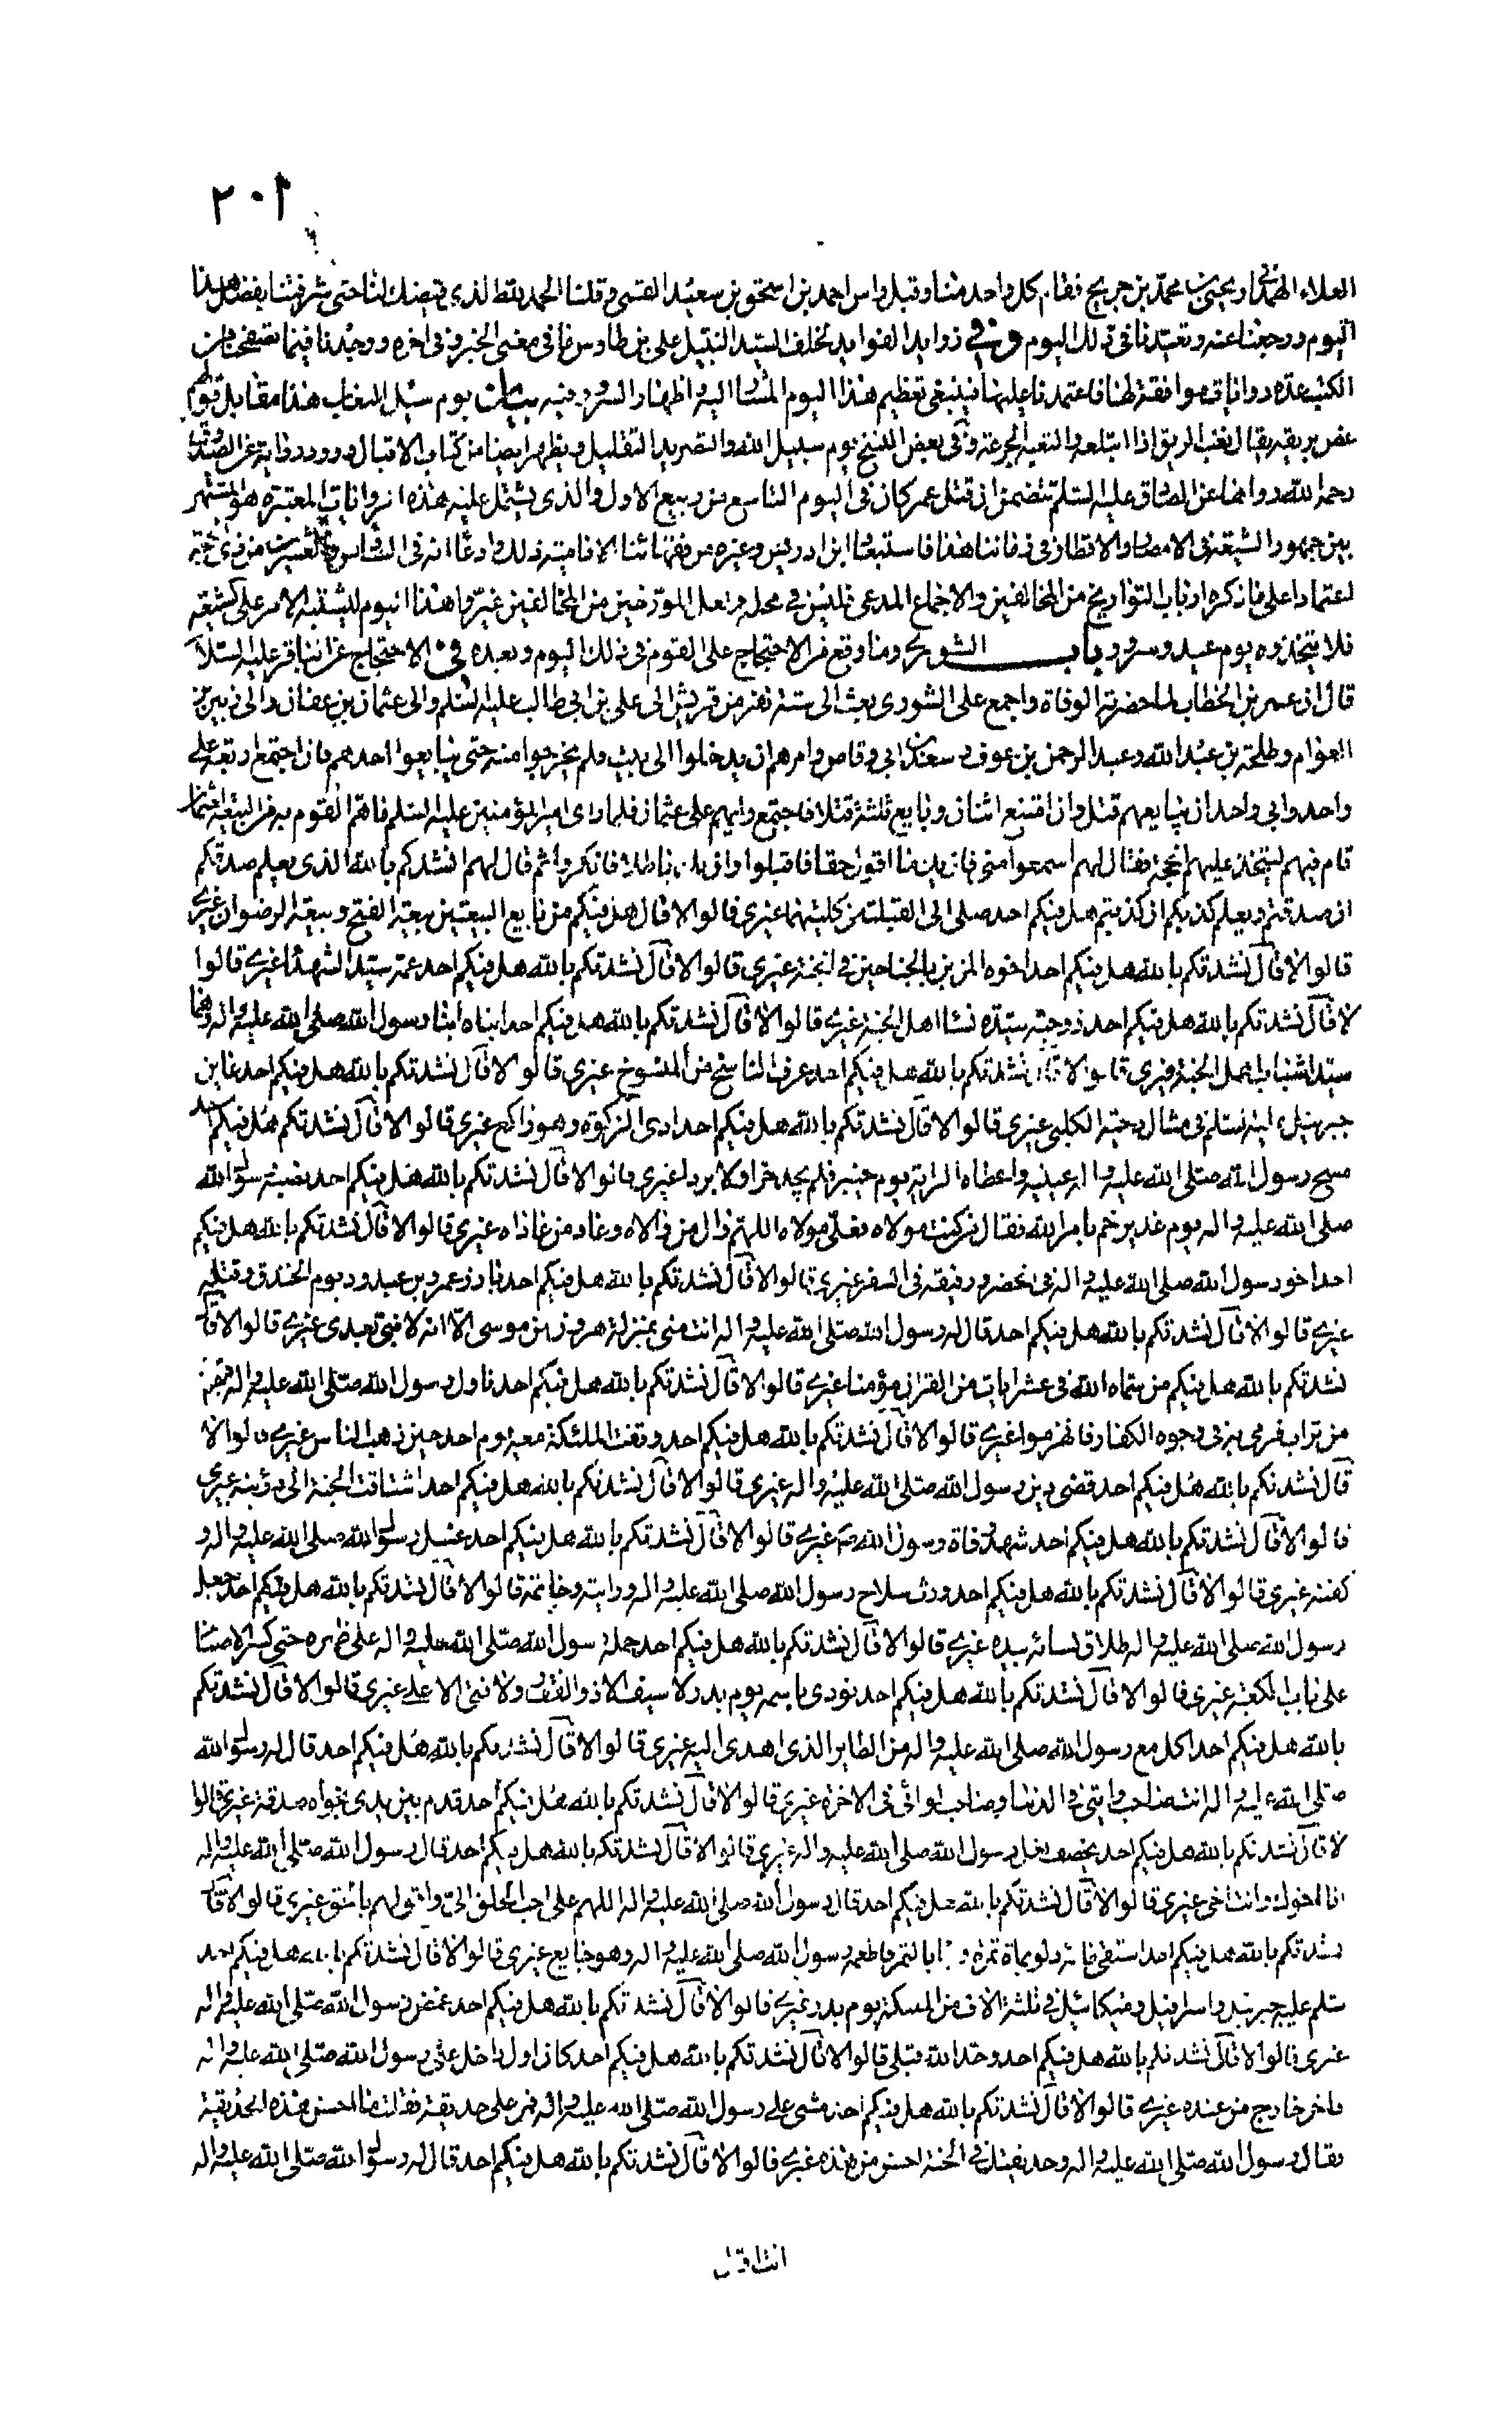 ٢٠٢
العلاء الهمداني ويحيى بن محمد بن جريج فقام كل واحد منا وقبل راس احمد بن اسحق بن سعيد القمي وقلنا الحمد لله الذي قيضك لنا حتى شرفتنا بفضل هذا
اليوم ورجعنا عنه وتعيدنا في ذلك اليوم وفي زوايد الفوايد لخلف السيد النبيل علي بن طاوس ما في معنى الخبر وفي اخره ووجدنا فيما تصفحنا من
الكتب عدة روايات موافقة لها فاعتمدنا عليها فينبغي تعظيم هذا اليوم المشار اليه واظهار السرور فيه بيان يوم سبيل هذا مقابل قولهم
غص بريقه يقال نغب الريق اذا ابتلعه والنغبة الجرعة وفي بعض النسخ يوم سبيل الله والتصريد التقليل ويظهر ايضا من كتاب الاقبال ورود رواية عن الصدوق
رحمه الله رواها عن الصادق عليه السلم تتضمن ان قتل عمر كان في اليوم التاسع من ربيع الاول والذي يشتمل عليه هذه الروايات المعتبرة هو المشتهر
بين جمهور الشيعة في الامصار والاقطار في زماننا هذا فاستبعاد ابن ادريس وغيره من فقهائنا الامامية ذلك وادعا انه في السادس والعشرين من ذي حجة
اعتمادا على ما ذكره ارباب التواريخ من المخالفين والاجماع المدعى فليس في محله ولعل المورخين من المخالفين غيروا هذا اليوم ليشتبه الامر على الشيعة
فلا يتخذوه يوم عيد وسرور باب الشورى وما وقع من الاحتجاج على القوم في ذلك اليوم وبعده في الاحتجاج عن الباقر عليه السلام
قال ان عمر بن الخطاب لما حضرته الوفاة واجمع على الشورى بعث الى ستة نفر من قريش الى علي بن ابي طالب عليه السلم والى عثمان بن عفان والى زبير بن
العوام وطلحة بن عبد الله وعبد الرحمن بن عوف وسعد بن ابي وقاص وامرهم ان يدخلوا الى بيت ولم يخرجوا منه حتى يبايعوا احدهم فان اجتمع اربعة على
واحد وابى واحد ان يبايعهم قتل وان امتنع اثنان وبايع ثلثة قتلا فاجتمع رايهم على عثمان فلما راى امير المؤمنين عليه السلم ما هم القوم به من البيعة لعثمان
قام فيهم ليتخذ عليهم الحجة فقال لهم اسمعوا مني فان يك ما اقول حقا فاقبلوا وان يك باطلا فانكروا ثم قال لهم انشدكم بالله الذي يعلم صدقكم
ان صدقتم ويعلم كذبكم ان كذبتم هل فيكم احد صلى الى القبلتين كلتيهما غيري قالوا لا قال هل فيكم من بايع البيعتين بيعة الفتح وبيعة الرضوان غيري
قالوا لا قال نشدتكم بالله هل فيكم احد اخوه المزين بالجناحين في الجنة غيري قالوا لا قال نشدتكم بالله هل فيكم احد عمه سيد الشهداء غيري قالوا
لا قال نشدتكم بالله هل فيكم احد زوجته سيدة نساء اهل الجنة غيري قالوا لا قال نشدتكم بالله هل فيكم احد ابناه ابنا رسول الله صلى الله عليه واله وهما
سيدا شباب اهل الجنة غيري قالوا لا قال نشدتكم بالله هل فيكم احد عرف الناسخ من المنسوخ غيري قالوا لا قال نشدتكم بالله هل فيكم احد عاين
جبرئيل عليه السلم في مثال دحية الكلبي غيري قالوا لا قال نشدتكم بالله هل فيكم احد ادى الزكوة وهو راكع غيري قالوا لا قال نشدتكم هل فيكم احد
مسح رسول الله صلى الله عليه واله عينيه واعطاه الراية يوم خيبر فلم يجد حرا ولا بردا غيري قالوا لا قال نشدتكم بالله هل فيكم احد نصبه رسول الله
صلى الله عليه واله يوم غدير خم بامر الله فقال من كنت مولاه فعلي مولاه اللهم وال من والاه وعاد من عاداه غيري قالوا لا قال نشدتكم بالله هل فيكم
احد اخو رسول الله صلى الله عليه واله في الحضر ورفيقه في السفر غيري قالوا لا قال نشدتكم بالله هل فيكم احد بارز عمرو بن عبد ود يوم الخندق وقتله
غيري قالوا لا قال نشدتكم بالله هل فيكم احد قال له رسول الله صلى الله عليه واله انت مني بمنزلة هرون من موسى الا انه لا نبي بعدي غيري قالوا لا قال
نشدتكم بالله هل فيكم من سماه الله في عشر ايات من القران مؤمنا غيري قالوا لا قال نشدتكم بالله هل فيكم احد ناول رسول الله صلى الله عليه واله قبضة
من تراب فرمى به في وجوه الكفار فانهزموا غيري قالوا لا قال نشدتكم بالله هل فيكم احد وقفت الملئكة معه يوم احد حين ذهب الناس غيري قالوا لا
قال نشدتكم بالله هل فيكم احد قضى دين رسول الله صلى الله عليه واله غيري قالوا لا قال نشدتكم بالله هل فيكم احد اشتاقت الجنة الى رؤيته غيري
قالوا لا قال نشدتكم بالله هل فيكم احد شهد وفاة رسول الله ص غيري قالوا لا قال نشدتكم بالله هل فيكم احد غسل رسول الله صلى الله عليه واله و
كفنه غيري قالوا لا قال نشدتكم بالله هل فيكم احد ورث سلاح رسول الله صلى الله عليه واله ورايته وخاتمه قالوا لا قال نشدتكم بالله هل فيكم احد جعل
رسول الله صلى الله عليه واله طلاق نسائه بيده غيري قالوا لا قال نشدتكم بالله هل فيكم احد حمله رسول الله صلى الله عليه واله على ظهره حتى كسر الاصنام
على باب الكعبة غيري قالوا لا قال نشدتكم بالله هل فيكم احد نودي باسمه يوم بدر لا سيف الا ذو الفقار ولا فتى الا علي غيري قالوا لا قال نشدتكم
بالله هل فيكم احد اكل مع رسول الله صلى الله عليه واله من الطاير الذي اهدي اليه غيري قالوا لا قال نشدتكم بالله هل فيكم احد قال له رسول الله
صلى الله عليه واله انت صاحب رايتي في الدنيا وصاحب لوائي في الاخرة غيري قالوا لا قال نشدتكم بالله هل فيكم احد قدم بين يدي نجواه صدقة غيري قالوا
لا قال نشدتكم بالله هل فيكم احد يخصف نعل رسول الله صلى الله عليه واله غيري قالوا لا قال نشدتكم بالله هل فيكم احد قال رسول الله صلى الله عليه واله
انا اخوك وانت اخي غيري قالوا لا قال نشدتكم بالله هل فيكم احد قال رسول الله صلى الله عليه واله اللهم علي احب الخلق الي واقولهم بالحق غيري قالوا لا قال
نشدتكم بالله هل فيكم احد استقى مائة دلو بمائة تمرة وجاء بالتمر فاطعمه رسول الله صلى الله عليه واله وهو جايع غيري قالوا لا قال نشدتكم بالله هل فيكم احد
سلم عليه جبرئيل واسرافيل وميكائيل في ثلثة الاف من الملئكة يوم بدر غيري قالوا لا قال نشدتكم بالله هل فيكم احد غمض رسول الله صلى الله عليه واله
غيري قالوا لا قال نشدتكم بالله هل فيكم احد وحد الله قبلي قالوا لا قال نشدتكم بالله هل فيكم احد كان اول داخل على رسول الله صلى الله عليه واله
واخر خارج من عنده غيري قالوا لا قال نشدتكم بالله هل فيكم احد مشى على رسول الله صلى الله عليه واله فمر على حديقة فقلت ما احسن هذه الحديقة
فقال رسول الله صلى الله عليه واله وحديقتك في الجنة احسن من هذه غيري قالوا لا قال نشدتكم بالله هل فيكم احد قال له رسول الله صلى الله عليه واله
انت اول